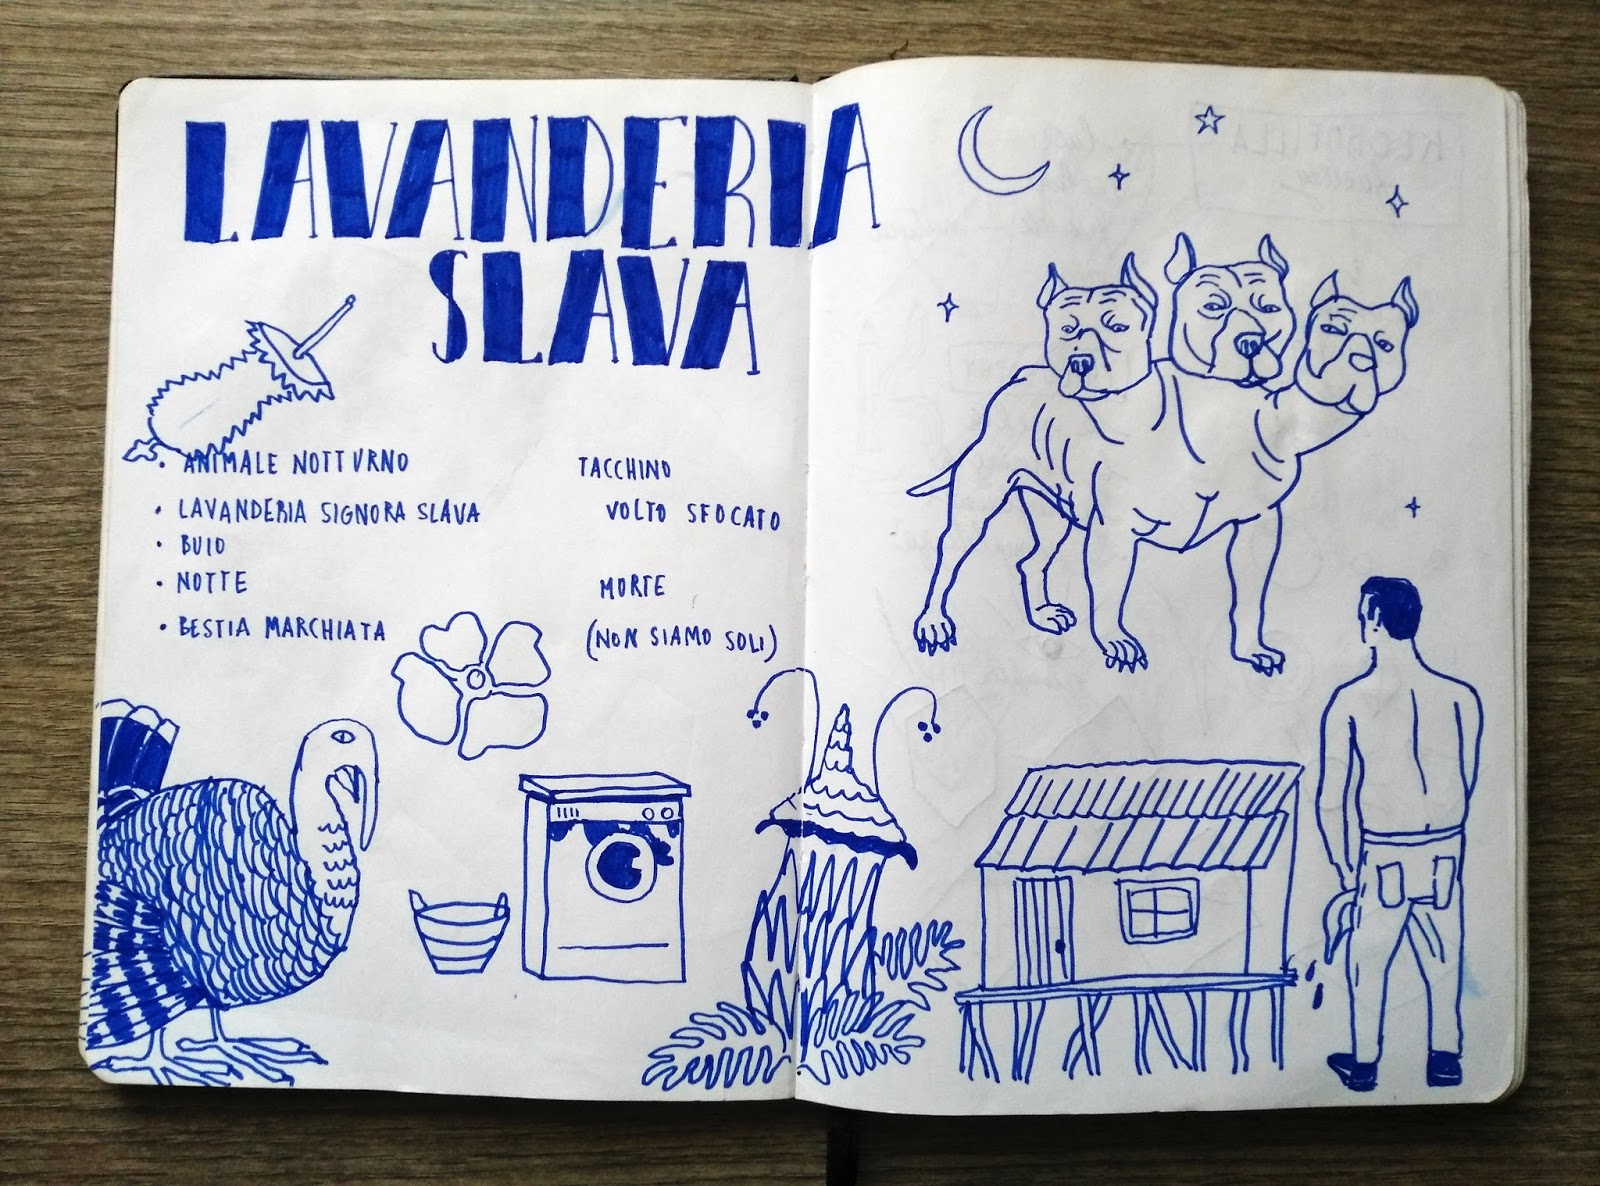 LAVANDERIA
SLAVA
• ANIMALE NOTTURNO
• LAVANDERIA SIGNORA SLAVA
• BUIO
• NOTTE
• BESTIA MARCHIATA
TACCHINO
VOLTO SFOCATO
MORTE
(NON SIAMO SOLI)